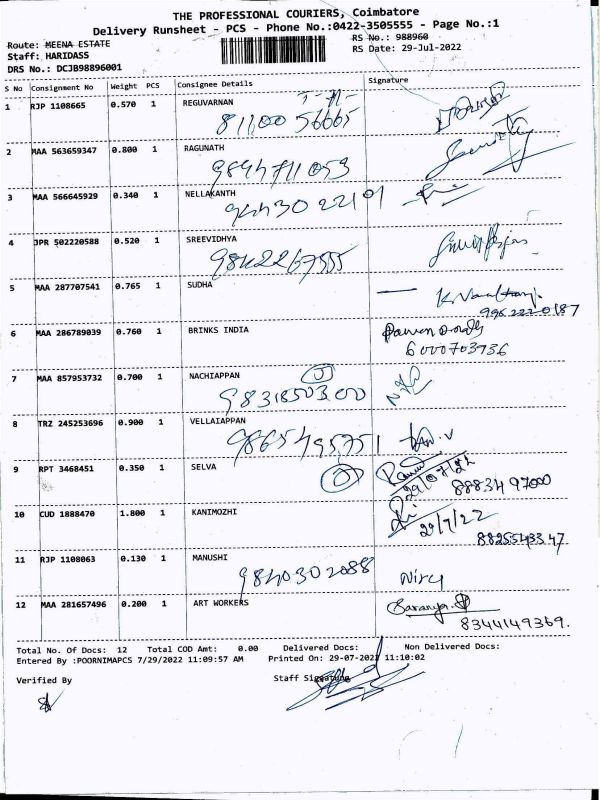 THE PROFESSIONAL COURIERS, Coimbatore
Delivery Runsheet - PCS - Phone No.:0422-3505555 - Page No.:1
Route: MEENA ESTATE
RS No.: 988960
Staff: HARIDASS
RS Date: 29-Jul-2022
DRS No.: DCJB98896001
S No Consignment No Weight PCS Consignee Details Signature
1 RJP 1108665 0.570 1 REGUVARNAN
81100 56665
2 MAA 563659347 0.800 1 RAGUNATH
9844711053
3 MAA 566645929 0.340 1 NELLAKANTH
4 JPR 502220588 0.520 1 SREEVIDHYA
9842267555
5 MAA 287707541 0.765 1 SUDHA
6 MAA 286789039 0.760 1 BRINKS INDIA
6000703936
7 MAA 857953732 0.700 1 NACHIAPPAN
9831850300
8 TRZ 245253696 0.900 1 VELLAIAPPAN
9865495751
9 RPT 3468451 0.350 1 SELVA
29/07/22
88834 97000
10 CUD 1888470 1.800 1 KANIMOZHI
29/7/22
8825543347
11 RJP 1108063 0.130 1 MANUSHI
9840302088
12 MAA 281657496 0.200 1 ART WORKERS
Saranya
8344149369.
Total No. Of Docs: 12 Total COD Amt: 0.00 Delivered Docs: Non Delivered Docs:
Entered By :POORNIMAPCS 7/29/2022 11:09:57 AM Printed On: 29-07-2022 11:10:02
Verified By Staff Signature